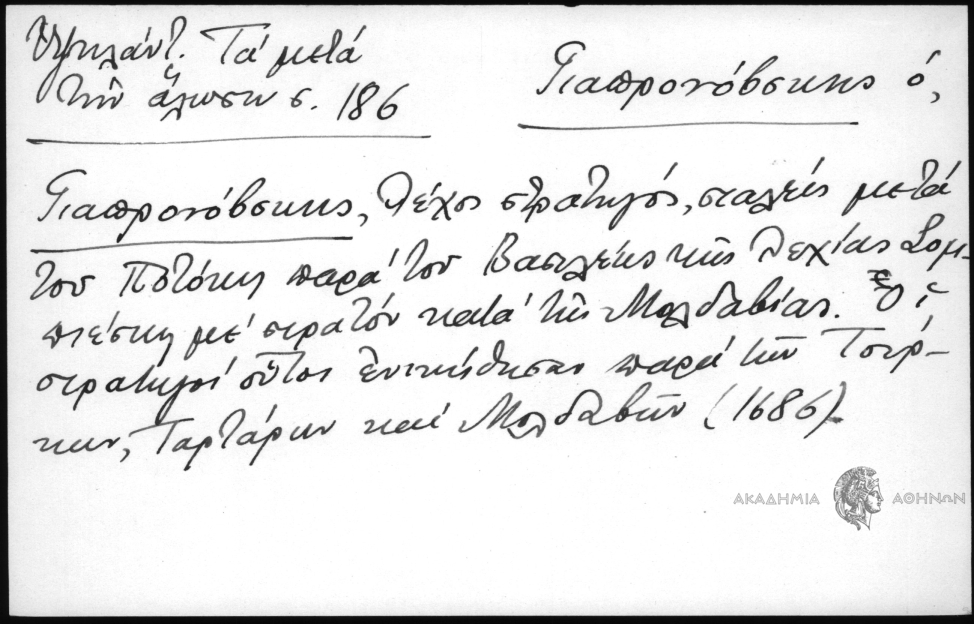 Ὑψηλάντ. Τά μετά
τήν ἅλωσιν σ. 186
Γιαπρονόβσκης ὁ,
Γιαπρονόβσκης, Λέχος στρατηγός, σταλείς μετά
τοῦ Ποτόκη παρά τοῦ Βασιλέως τῆς Λεχίας Σομ-
πιέσκη μέ στρατόν κατά τῆς Μολδαβίας. Οἱ
στρατηγοί οὗτοι ἐνικήθησαν παρά τῶν Τούρ-
κων, Ταρτάρων καί Μολδαβῶν (1686).
ΑΚΑΔΗΜΙΑ ΑΘΗΝΩΝ